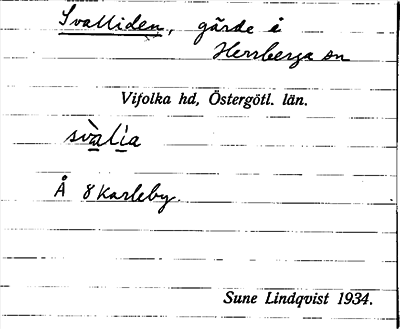 Svalliden, gärde å
Herrberga sn
Vifolka hd, Östergötl. län.
svàlia
Å 8 Karleby.
Sune Lindqvist 1934.